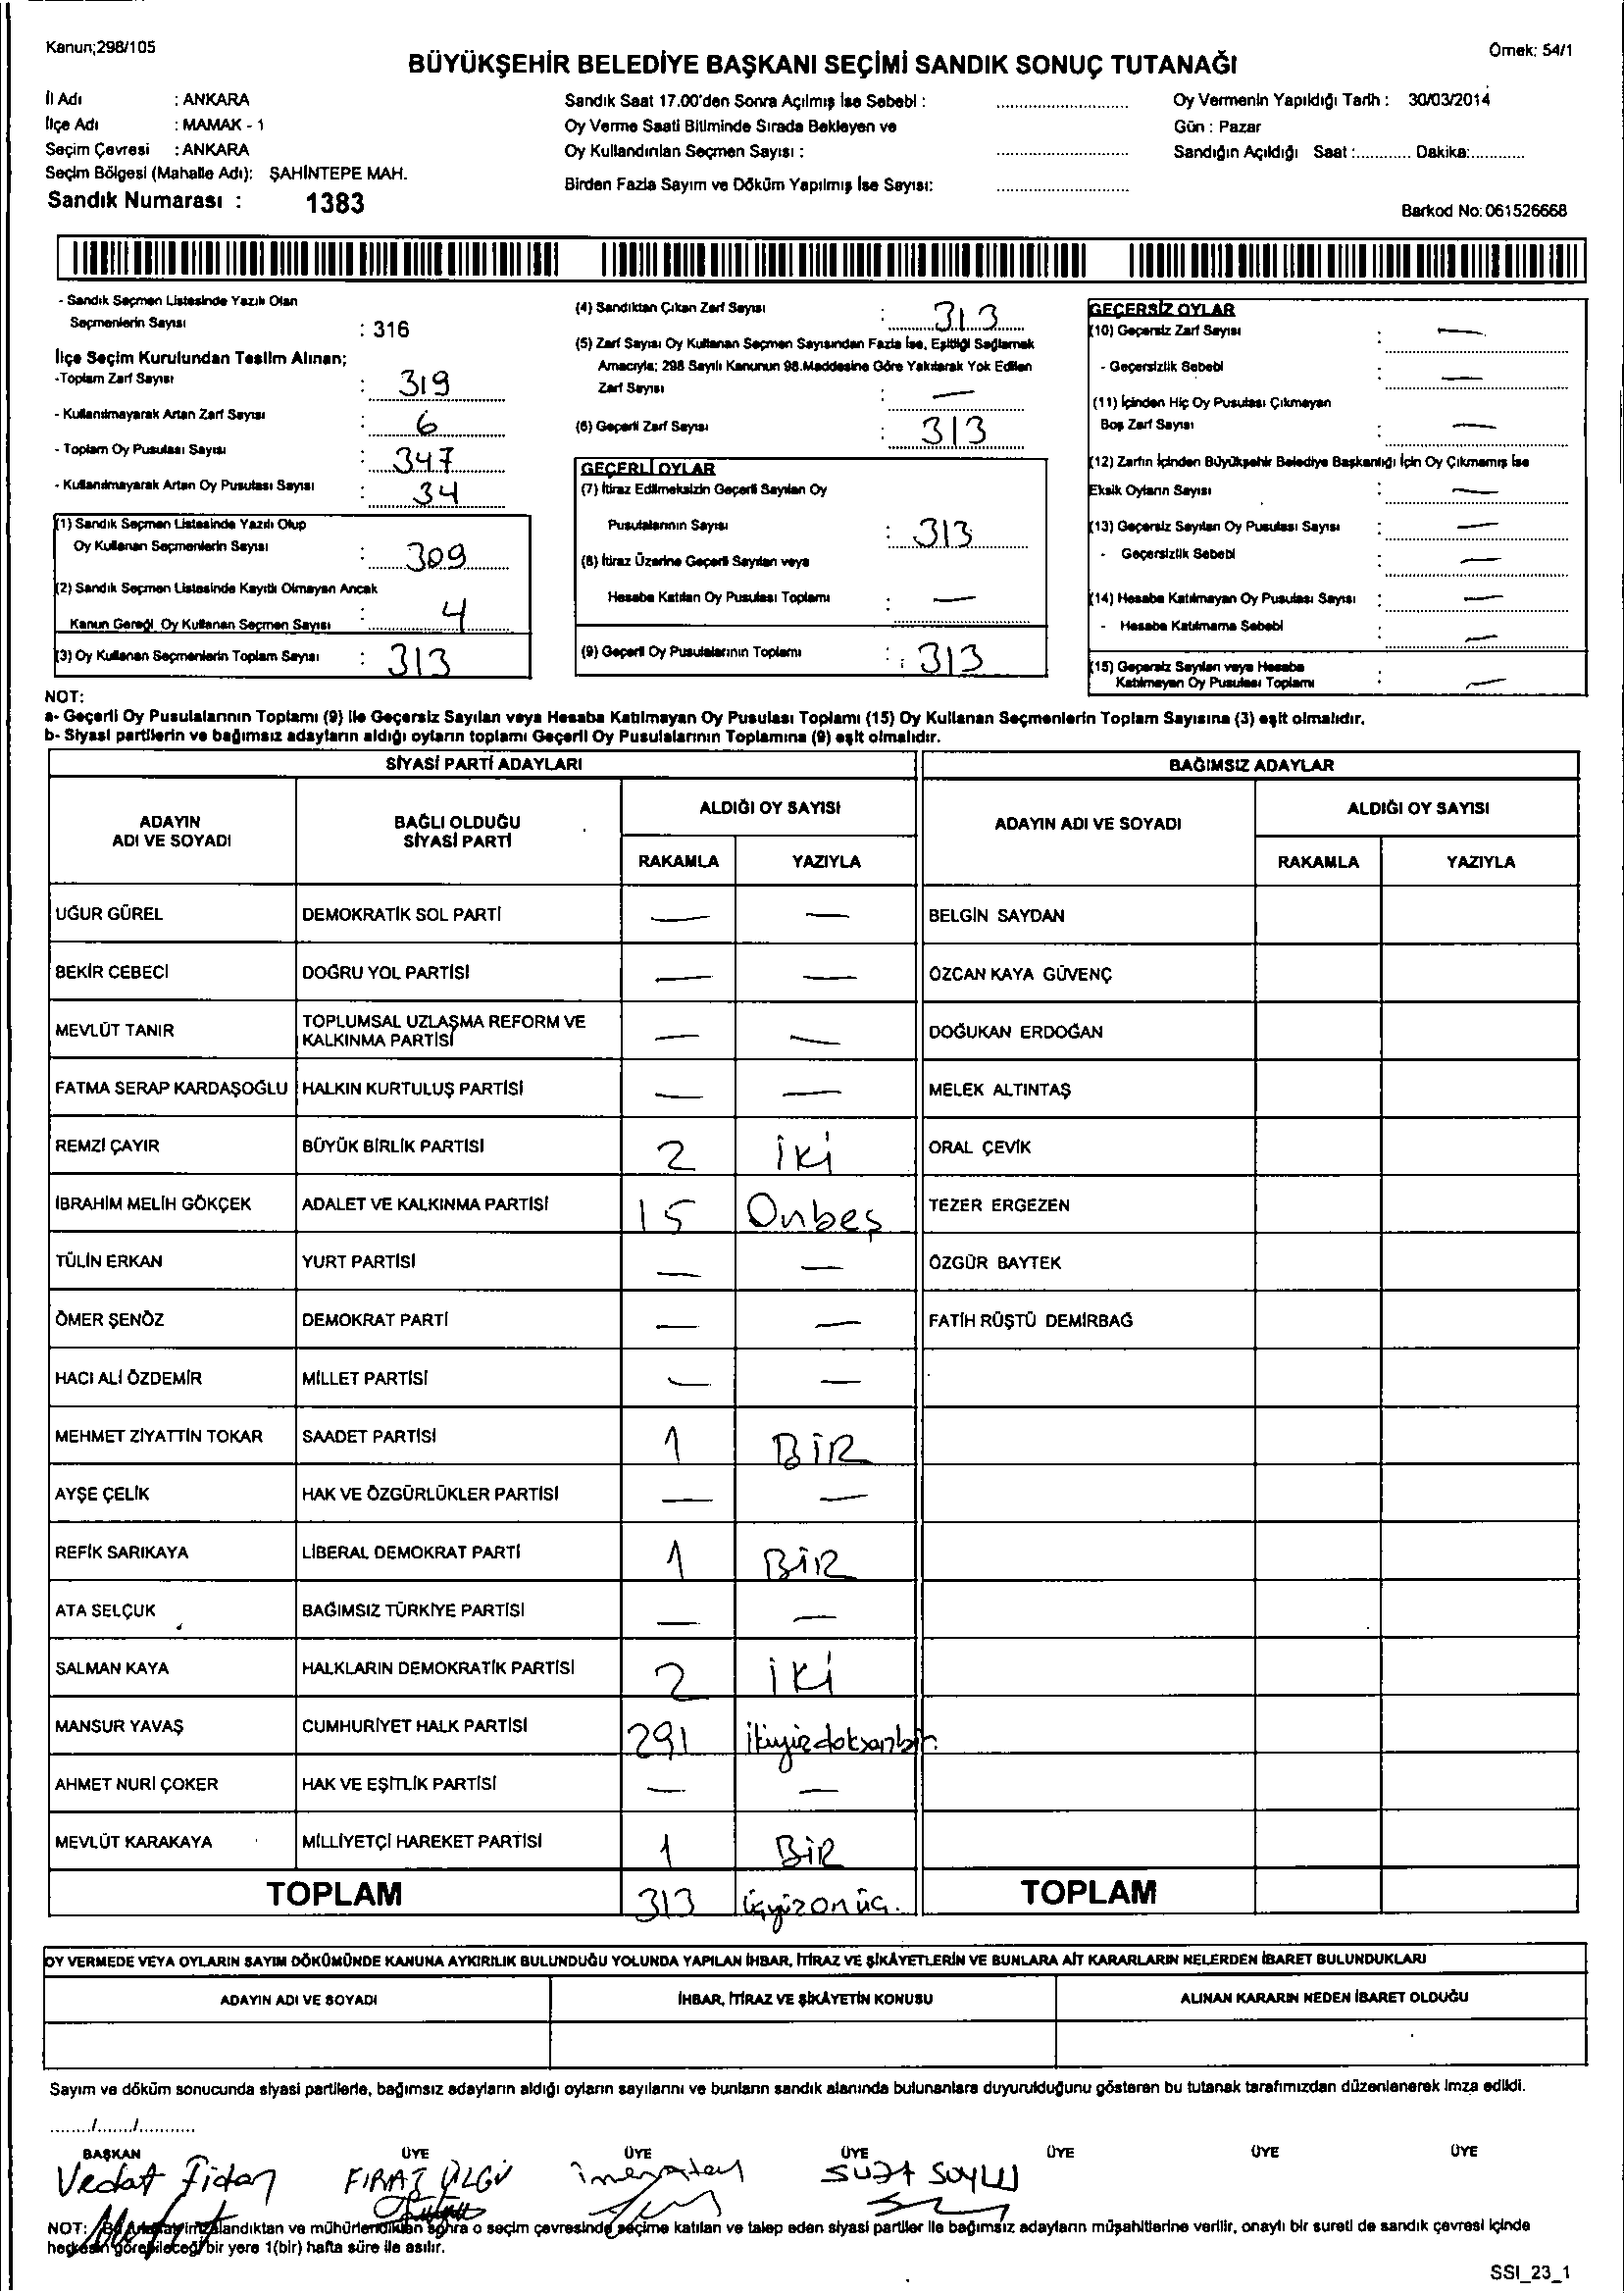 Kanun;298/105
Örnek: 54/1
BÜYÜKŞEHİR BELEDİYE BAŞKANI SEÇİMİ SANDIK SONUÇ TUTANAĞI
İl Adı : ANKARA
İlçe Adı : MAMAK - 1
Seçim Çevresi : ANKARA
Seçim Bölgesi (Mahalle Adı): ŞAHİNTEPE MAH.
Sandık Numarası : 1383
Sandık Saat 17.00'den Sonra Açılmış İse Sebebi : ..........................
Oy Verme Saati Bitiminde Sırada Bekleyen ve
Oy Kullandırılan Seçmen Sayısı : ..........................
Birden Fazla Sayım ve Döküm Yapılmış İse Sayısı: ..........................
Oy Vermenin Yapıldığı Tarih : 30/03/2014
Gün : Pazar
Sandığın Açıldığı Saat :............ Dakika:............
Barkod No: 061526668
- Sandık Seçmen Listesinde Yazılı Olan
Seçmenlerin Sayısı : 316
İlçe Seçim Kurulundan Teslim Alınan;
-Toplam Zarf Sayısı : 319
- Kullanılmayarak Artan Zarf Sayısı : 6
- Toplam Oy Pusulası Sayısı : 347
- Kullanılmayarak Artan Oy Pusulası Sayısı : 34
(1) Sandık Seçmen Listesinde Yazılı Olup
Oy Kullanan Seçmenlerin Sayısı : 309
(2) Sandık Seçmen Listesinde Kayıtlı Olmayan Ancak
Kanun Gereği, Oy Kullanan Seçmen Sayısı : 4
(3) Oy Kullanan Seçmenlerin Toplam Sayısı : 313
(4) Sandıktan Çıkan Zarf Sayısı : 313
(5) Zarf Sayısı Oy Kullanan Seçmen Sayısından Fazla İse, Eşitliği Sağlamak
Amacıyla; 298 Sayılı Kanunun 98.Maddesine Göre Yakılarak Yok Edilen
Zarf Sayısı : —
(6) Geçerli Zarf Sayısı : 313
GEÇERLİ OYLAR
(7) İtiraz Edilmeksizin Geçerli Sayılan Oy
Pusulalarının Sayısı : 313
(8) İtiraz Üzerine Geçerli Sayılan veya
Hesaba Katılan Oy Pusulası Toplamı : —
(9) Geçerli Oy Pusulalarının Toplamı : 313
GEÇERSİZ OYLAR
(10) Geçersiz Zarf Sayısı : —
- Geçersizlik Sebebi : —
(11) İçinden Hiç Oy Pusulası Çıkmayan
Boş Zarf Sayısı : —
(12) Zarfın İçinden Büyükşehir Belediye Başkanlığı İçin Oy Çıkmamış İse
Eksik Oyların Sayısı : —
(13) Geçersiz Sayılan Oy Pusulası Sayısı : —
- Geçersizlik Sebebi : —
(14) Hesaba Katılmayan Oy Pusulası Sayısı : —
- Hesaba Katılmama Sebebi : —
(15) Geçersiz Sayılan veya Hesaba
Katılmayan Oy Pusulası Toplamı : —
NOT:
a- Geçerli Oy Pusulalarının Toplamı (9) ile Geçersiz Sayılan veya Hesaba Katılmayan Oy Pusulası Toplamı (15) Oy Kullanan Seçmenlerin Toplam Sayısına (3) eşit olmalıdır.
b- Siyasi partilerin ve bağımsız adayların aldığı oyların toplamı Geçerli Oy Pusulalarının Toplamına (9) eşit olmalıdır.
SİYASİ PARTİ ADAYLARI
BAĞIMSIZ ADAYLAR
ADAYIN ADI VE SOYADI
BAĞLI OLDUĞU SİYASİ PARTİ
ALDIĞI OY SAYISI
RAKAMLA YAZIYLA
ADAYIN ADI VE SOYADI
ALDIĞI OY SAYISI
RAKAMLA YAZIYLA
UĞUR GÜREL DEMOKRATİK SOL PARTİ — — BELGİN SAYDAN
BEKİR CEBECİ DOĞRU YOL PARTİSİ — — ÖZCAN KAYA GÜVENÇ
MEVLÜT TANIR TOPLUMSAL UZLAŞMA REFORM VE KALKINMA PARTİSİ — — DOĞUKAN ERDOĞAN
FATMA SERAP KARDAŞOĞLU HALKIN KURTULUŞ PARTİSİ — — MELEK ALTINTAŞ
REMZİ ÇAYIR BÜYÜK BİRLİK PARTİSİ 2 iki ORAL ÇEVİK
İBRAHİM MELİH GÖKÇEK ADALET VE KALKINMA PARTİSİ 15 Onbeş TEZER ERGEZEN
TÜLİN ERKAN YURT PARTİSİ — — ÖZGÜR BAYTEK
ÖMER ŞENÖZ DEMOKRAT PARTİ — — FATİH RÜŞTÜ DEMİRBAĞ
HACI ALİ ÖZDEMİR MİLLET PARTİSİ — —
MEHMET ZİYATTİN TOKAR SAADET PARTİSİ 1 BİR
AYŞE ÇELİK HAK VE ÖZGÜRLÜKLER PARTİSİ — —
REFİK SARIKAYA LİBERAL DEMOKRAT PARTİ 1 BİR
ATA SELÇUK BAĞIMSIZ TÜRKİYE PARTİSİ — —
SALMAN KAYA HALKLARIN DEMOKRATİK PARTİSİ 2 iki
MANSUR YAVAŞ CUMHURİYET HALK PARTİSİ 291 ikiyüzdoksanbir
AHMET NURİ ÇOKER HAK VE EŞİTLİK PARTİSİ — —
MEVLÜT KARAKAYA MİLLİYETÇİ HAREKET PARTİSİ 1 BİR
TOPLAM 313 üçyüzonüç. TOPLAM
OY VERMEDE VEYA OYLARIN SAYIM DÖKÜMÜNDE KANUNA AYKIRILIK BULUNDUĞU YOLUNDA YAPILAN İHBAR, İTİRAZ VE ŞİKÂYETLERİN VE BUNLARA AİT KARARLARIN NELERDEN İBARET BULUNDUKLARI
ADAYIN ADI VE SOYADI İHBAR, İTİRAZ VE ŞİKÂYETİN KONUSU ALINAN KARARIN NEDEN İBARET OLDUĞU
Sayım ve döküm sonucunda siyasi partilerle, bağımsız adayların aldığı oyların sayılarını ve bunların sandık alanında bulunanlara duyurulduğunu gösteren bu tutanak tarafımızdan düzenlenerek imza edildi.
......../......../............
BAŞKAN ÜYE ÜYE ÜYE ÜYE ÜYE ÜYE
Vedat Fidan FIRAT ÜLGÜ SUZA SOYLU
NOT: Bu tutanak imzalandıktan ve mühürlendikten sonra o seçim çevresinde seçime katılan ve talep eden siyasi partiler ile bağımsız adayların müşahitlerine verilir, onaylı bir sureti de sandık çevresi içinde
herkesin görebileceği bir yere 1(bir) hafta süre ile asılır.
SSI_23_1